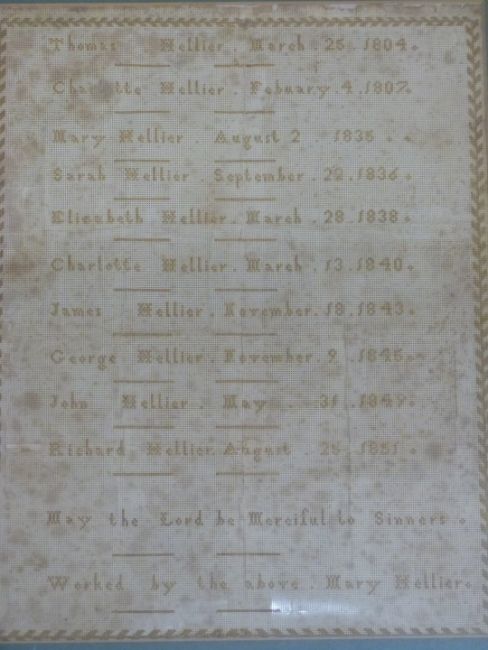 Thomas Hellier . March . 25 . 1804 .
Charlotte Hellier . Febuary . 4 . 1807 .
Mary Hellier . August 2 . 1835 . .
Sarah Hellier . September . 22 . 1836 .
Elizabeth Hellier . March . 28 . 1838 .
Charlotte Hellier . March . 13 . 1840 .
James Hellier . November . 18 . 1843 .
George Hellier . November . 9 . 1845 .
John Hellier . May . 31 . 1849 .
Richard Hellier August . 25 . 1851 .
May the Lord be Merciful to Sinners .
Worked by the above . Mary Hellier .